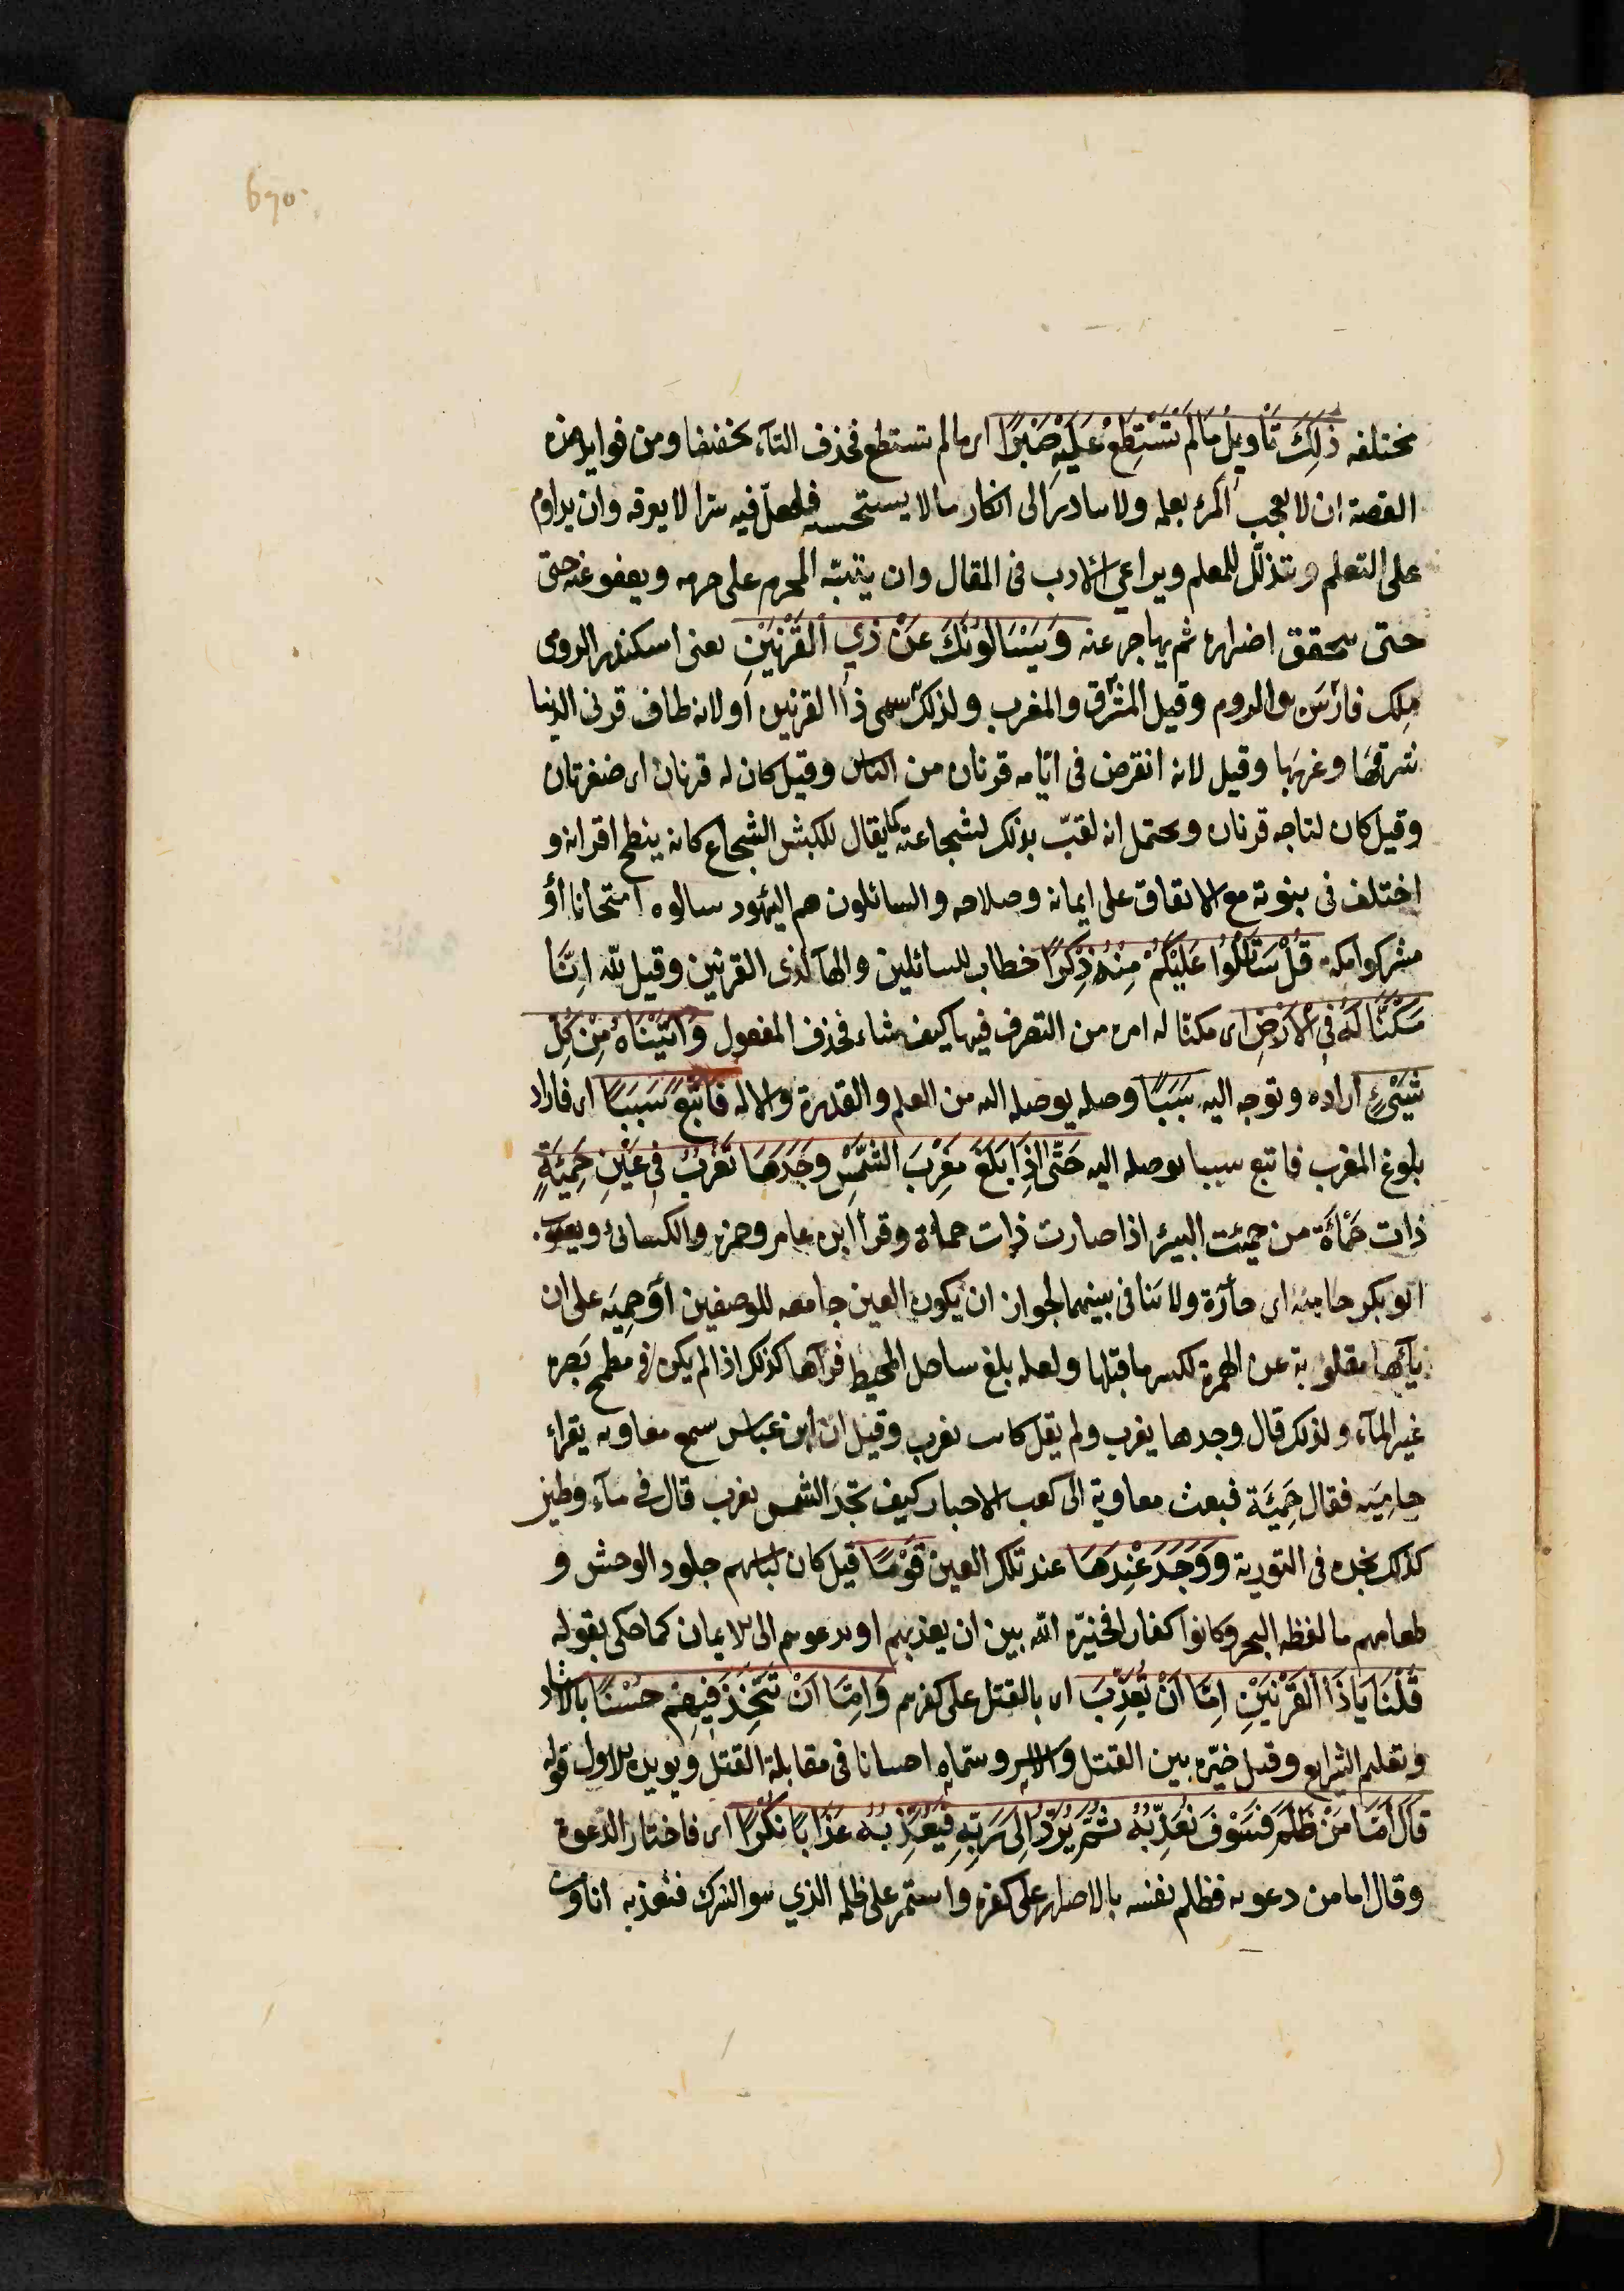 690
مختلفه ذَلِكَ تَأْوِيلُ مَا لَمْ تَسْتَطِعْ عَلَيْهِ صَبْرًا اى مالم تستطع فحذف التآء تخفيفا ومن فوايد هذه
القصة ان لا يعجب المرء بعلمه ولا يبادر الى انكار ما لا يستحسنه فلعلّ فيه سرا لا يعرفه وان يداوم
على التعلم ويتذلّل للمعلم ويراعي الادب فى المقال وان ينبّه المجرم على جرمه ويعفو عنه حتى
حتى يتحقق اضراره ثم يهاجر عنه وَيَسْئَالُونَكَ عَنْ ذِي الْقَرْنَيْنِ يعنى اسكندر الرومى
مِلك فارسَ والروم وقيل المشرق والمغرب ولذلك سمى ذا القرنين او لانه طاف قرنى الدنيا
شرقها وغربها وقيل لانه انقرض فى ايّامه قرنان من الناس وقيل كان له قرنان اى ضفيرتان
وقيل كان لتاجه قرنان ويحتمل انه لقبّ بذلك لشجاعته كما يقال للكبش الشجاع كانه ينطح اقرانه و
اختلف فى نبوته مع الاتفاق على ايمانه وصلاحه والسائلون هم اليهود سالوه امتحانا أوْ
مشركوا مكة قُلْ سَأَتْلُوا عَلَيْكُمْ مِنْهُ ذِكْرًا خطاب للسائلين والهآ لذى القرنين وقيل للّه اِنَّا
مَكَّنَّا لَهُ فِي الْاَرْضِ اى مكنا له امره من التصرف فيها كيف شاء فحذف المفعول وَآتَيْنَاهُ مِنْ كُلِّ
شَيْءٍ اراده وتوجه اليه سَبَبًا وصله يوصله اليه من العلم والقدرة والاله فَاتَّبَعَ سَبَبًا اى فاراد
بلوغ المغرب فاتبع سببا يوصله اليه حَتَّى اِذَا بَلَغَ مَغْرِبَ الشَّمْسِ وَجَدَهَا تَغْرُبُ فِي عَيْنٍ حَمِيَةٍ
ذات حَمْأَة من حميئت البيئر اذا صارت ذات حماة وقرأ ابن عامر وحمزه والكسائى ويعقوب
ابو بكر حاميه اى حآرّة ولا تنافى بينهما لجواز ان يكون العين جامعه للوصفين أوْ حمِيَه على ان
يآئها مقلوبة عن الهمزة لكسر ما قبلها ولعله بلغ ساحل المحيط فرآها كذلك اذ لم يكن فى مطمح بَصره
غير المآء ولذلك قال وجدها يغرب ولم يقل كانت تغرب وقيل ان ابن عباس سمع معاويه يقراء
حامِيَه فقال حَمِيَّة فبعث معاوية الى كعب الاحبار كيف تجد الشمس يغرب قال فى مآء وطين
كذلك نجده فى التورية وَوَجَدَ عِنْدَهَا عند تلك العين قَوْمًا قيل كان لباسهم جلود الوحش و
طعامهم ما لفظه البحر وكانوا كفارا فخيّره اللّه بين ان يعذبهم او يدعوهم الى الايمان كما حكى بقوله
قُلْنَا يَا ذَا الْقَرْنَيْنِ اِمَّا اَنْ تُعَذِّبَ اى بالقتل على كفرهم وَاِمَّا اَنْ تَتَّخِذَ فِيهِمْ حُسْنًا بالارشاد
وتعليم الشرايع وقيل خيّره بين القتل والاسر وسمّاه احسانا فى مقابلة القتل ويويده الاول قوله
قَالَ اَمَّا مَنْ ظَلَمَ فَسَوْفَ نُعَذِّبُهُ ثُمَّ يُرَدُّ اِلَى رَبِّهِ فَيُعَذِّبُهُ عَذَابًا نُكْرًا اى فاختار الدعوة
وقال اما من دعوته فظلم نفسه بالاصرار على كفره واستمر على ظلمه الذي هو الشرك فنعذبه انا ومن